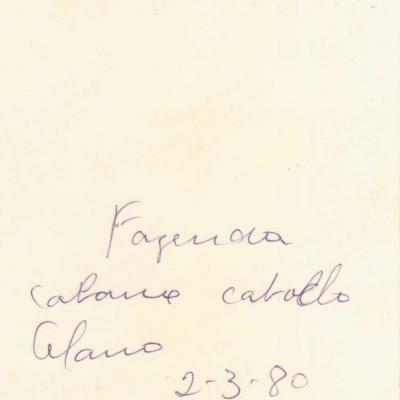 Fazenda
cabana cavallo
Alano
2-3-80